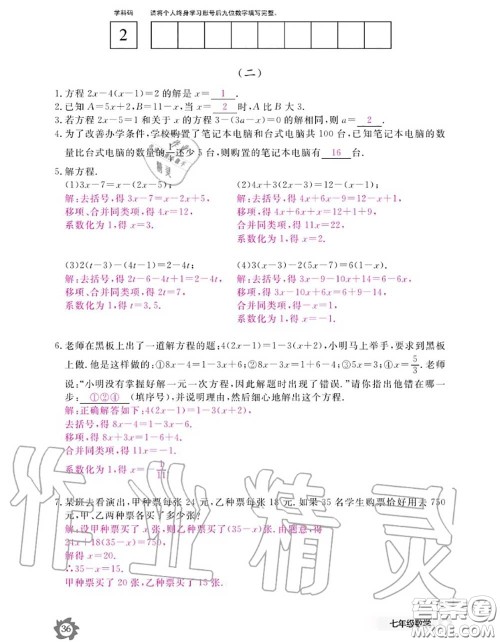 学科码 请将个人终身学习账号后九位数字填写完整。
2
(二)
1.方程 2x-4(x-1)=2 的解是 x= 1 .
2.已知 A=5x+2,B=11-x,当 x= 2 时,A 比 B 大 3.
3.若方程 2x-5=1 和关于 x 的方程 3-(3a-x)=0 的解相同,则 a= 2 .
4.为了改善办学条件,学校购置了笔记本电脑和台式电脑共 100 台,已知笔记本电脑的数
量比台式电脑的数量的 还少 5 台,则购置的笔记本电脑有 16 台.
5.解方程.
(1)3x-7=x-2(x-3); (2)4x+3(2x-3)=12-(x-1);
解:去括号,得 3x-7=x-2x+5, 解:去括号,得 4x+6x-9=12-x+1,
移项、合并同类项,得 4x=12, 移项,得 4x+6x+x=12+1+9,
系数化为 1,得 x=3. 合并同类项,得 11x=22,
系数化为 1,得 x=2.
(3)2(t-3)-(4t-1)=2-4t; (4)3(x-3)-2(5x-7)=6(1-x).
解:去括号,得 2t-6-4t+1=2-4t, 解:去括号,得 3x-9-10x+14=6-6x,
移项、合并同类项,得 2t=7, 移项,得 3x-10x+6x=6+9-14,
系数化为 1,得 t=3.5. 合并同类项,得 -x=1,
系数化为 1,得 x=-1.
6.老师在黑板上出了一道解方程的题:4(2x-1)=1-3(x+2),小明马上举手,要求到黑板
上做.他是这样做的:①8x-4=1-3x+6;②8x-3x=1+6-4;③5x=3;④x=5/3.老
师说:“小明没有掌握好解一元一次方程,因此解题时出现了错误.”请你指出他错在哪一
步: ①②④ (填序号),并说明理由,然后细心地解出这个方程.
解:正确解答如下:4(2x-1)=1-3(x+2),
去括号,得 8x-4=1-3x-6,
移项,得 8x+3x=1-6+4,
合并同类项,得 11x=-1,
系数化为 1,得 x=-1/11
7.某班去看演出,甲种票每张 24 元,乙种票每张 18 元.如果 35 名学生购票恰好用去 750
元,甲、乙两种票各买了多少张?
解:设甲种票买了 x 张,则乙种票买了(35-x)张.由题意,得
24x+18(35-x)=750,
解得 x=20.
∴35-x=15.
甲种票买了 20 张,乙种票买了 15 张.
作业精灵
36
七年级数学